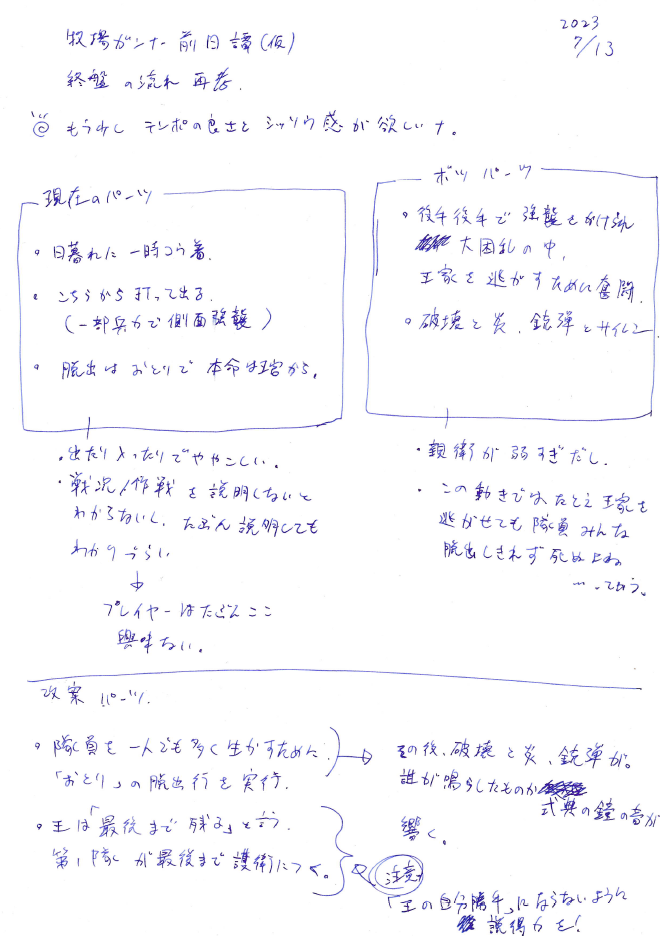 2023
7/13
牧場ガンナー前日譚(仮)
終盤の流れ 再考.
もう少し テンポの良さと シッソウ感が欲しいナ。
現在のパーツ
・日暮れに一時コウ着.
・こちらから打って出る.
(一部兵力で側面強襲)
・脱出はおとりで本命は王宮から。
・出たり入ったりでややこしい。
・戦況/作戦を説明しないと
わからないし、たぶん説明しても
わかりづらい
↓
プレイヤーはたぶんここ
興味ない。
ボツパーツ
・後手後手で強襲をかけられ
大困乱の中,
王家を逃がすために奮闘.
・破壊と炎、銃弾とサイレン
・親衛が弱すぎだし.
・この動きではたとえ王家を
逃がせても隊員みんな
脱出しきれず死ぬよね
…ってなう。
改案パーツ.
・隊員を一人でも多く生かすために
「おとり」の脱出行を実行.
・王は「最後まで残る」と言う.
第1隊が最後まで護衛につく。
→ その後、破壊と炎、銃弾が。
誰が鳴らしたものか
式典の鐘の音が
響く。
注意
「王の自分勝手」にならないように
説得力を!